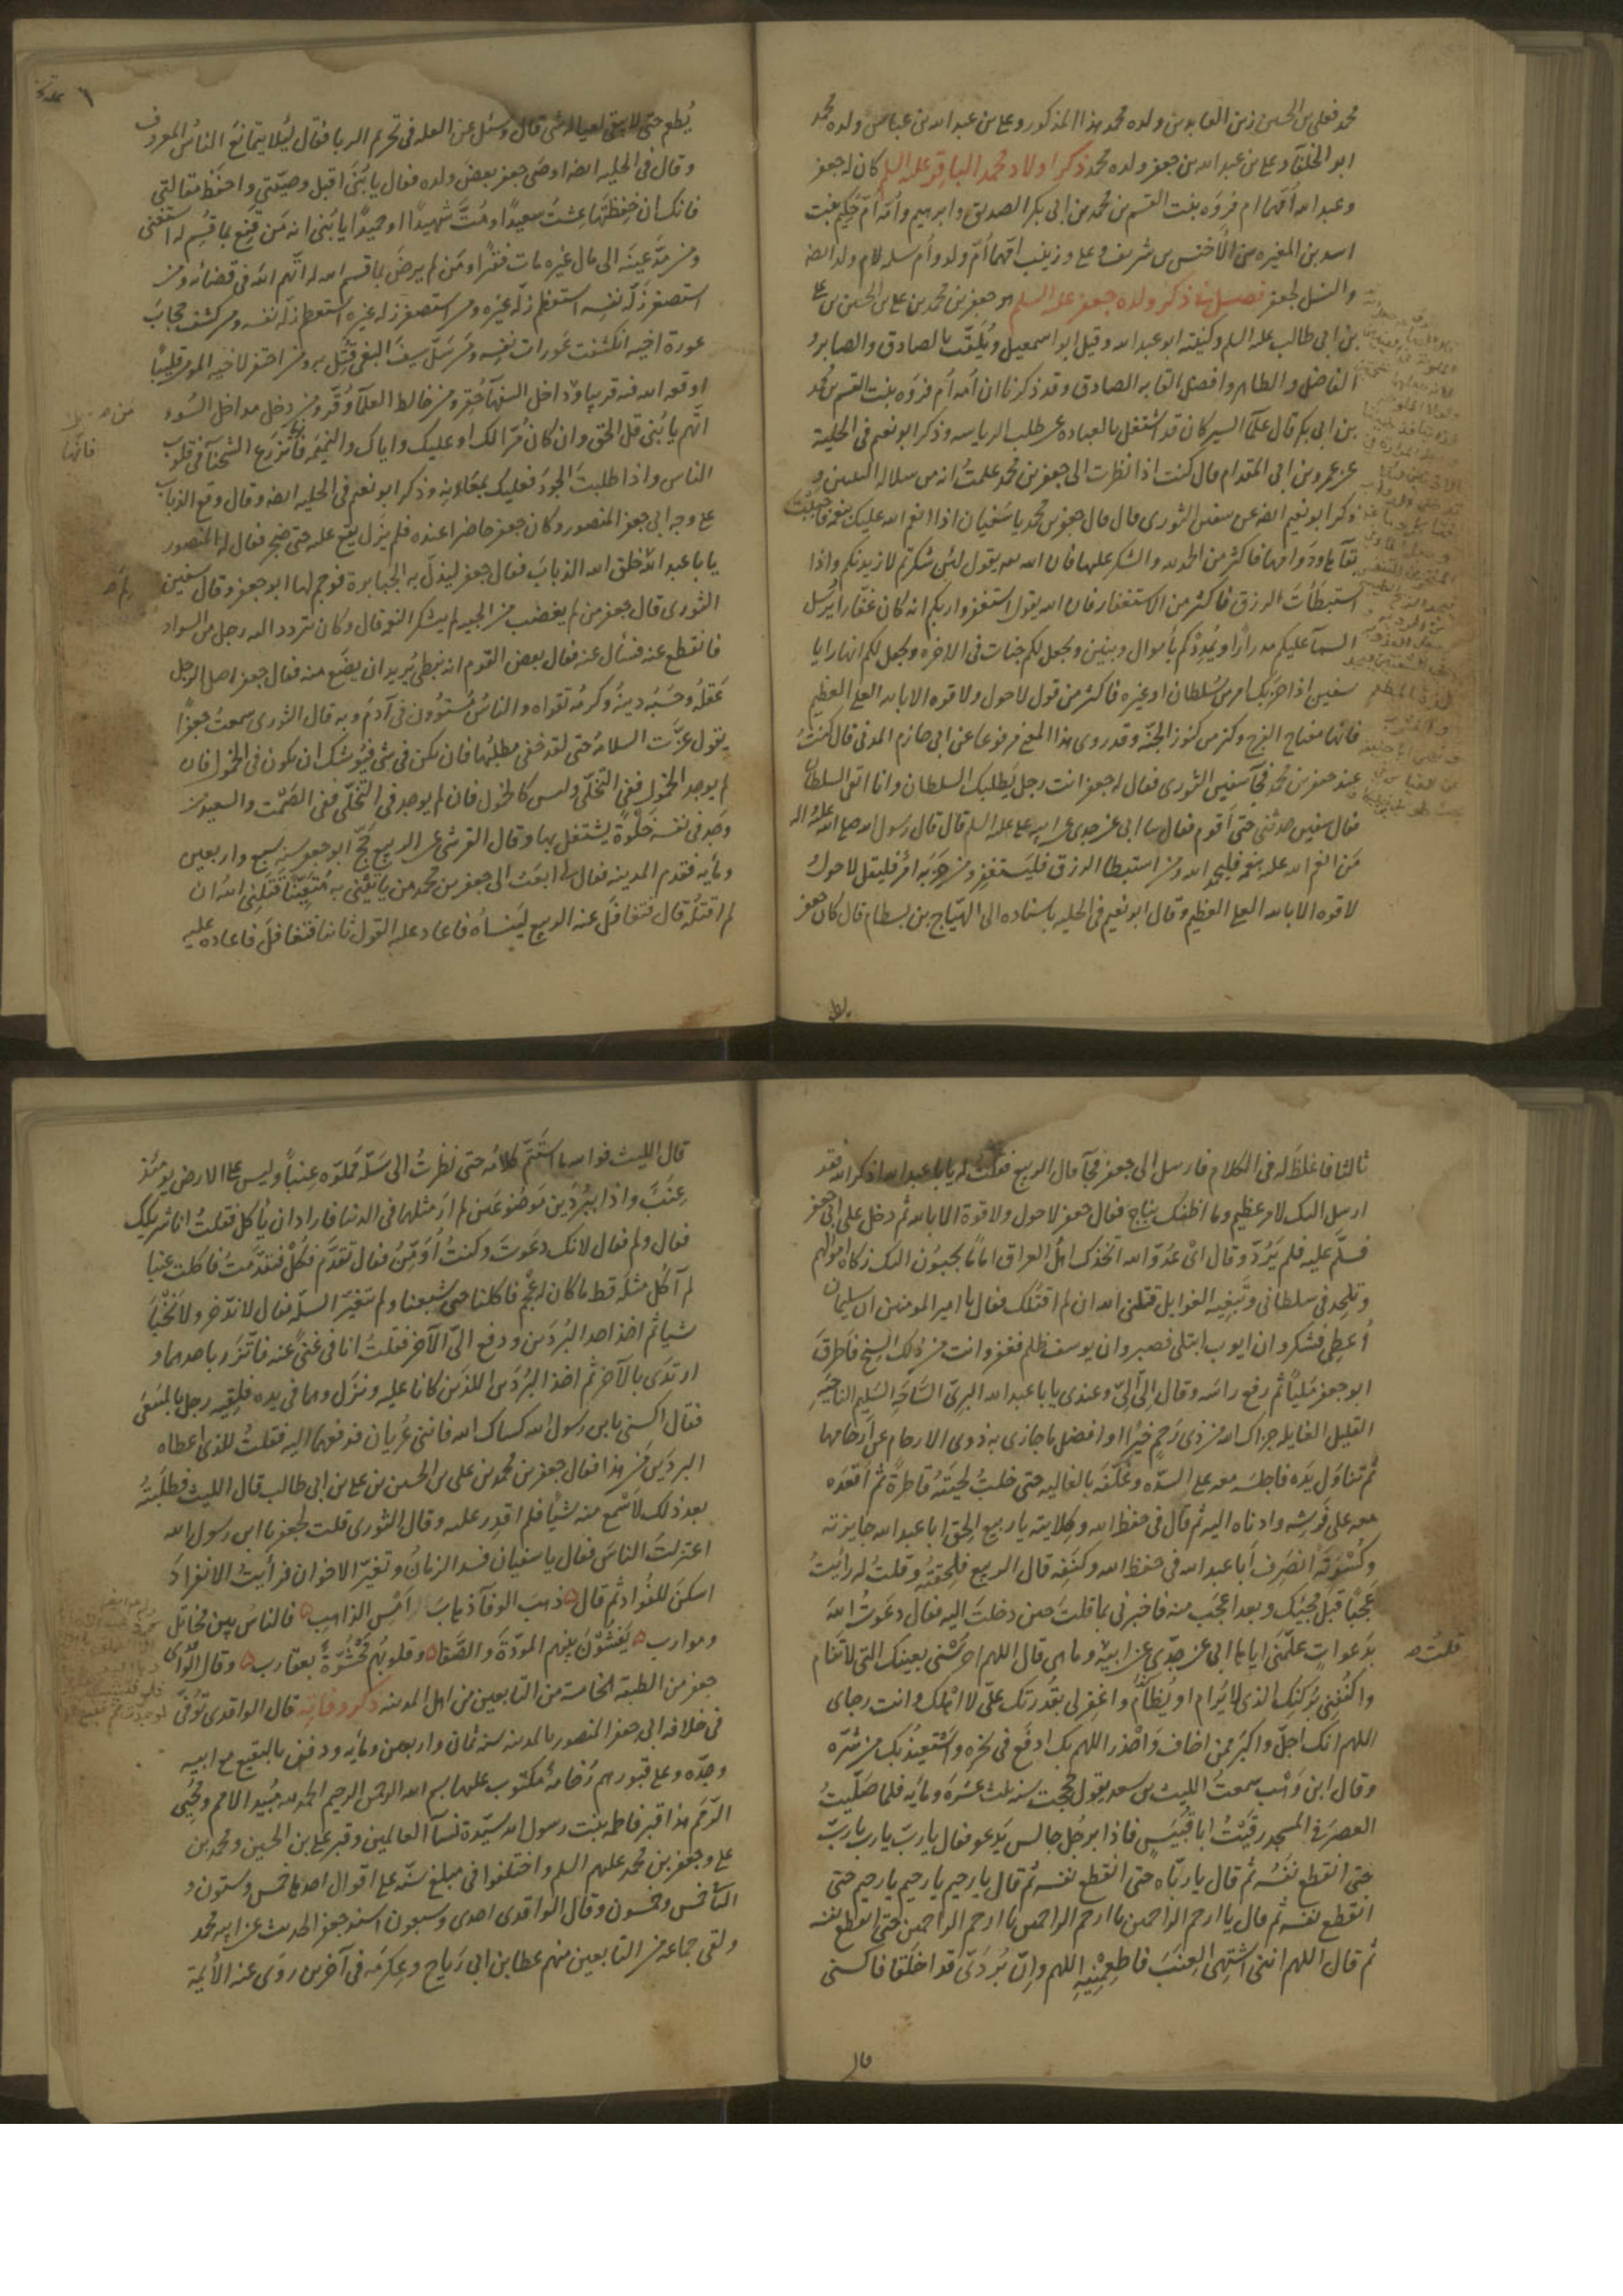 محمد فعلی بن الحسین زین العابدین ولده محمد هذا المذکور وعلی بن عبد الله بن عباس ولده محمد
ابو الخلفآ وعلی بن عبد الله بن جعفر ولده محمد ذکر اولاد محمد الباقر علیه السلم کان له جعفر
وعبد الله اُمّهما ام فروَه بنت القسم بن محمد بن ابی بکر الصدیق وابرهیم واُمّه اُمّ حکیم بنت
اسد بن المغیره بن الاَخنس بن شریف وعلی وزینب امّهما اُمّ ولد واُم سلمه لام ولد ایضه
والنسل لجعفر فصل فی ذکر ولده جعفر علیه السلم هو جعفر بن محمد بن علی بن الحسین بن علی
بن ابی طالب علیه السلم وکنیته ابو عبد الله وقیل ابو اسمعیل ویُلَقّب بالصادق والصابر و
الفاضل والطاهر وافضل القابه الصادق وقد ذکرنا ان اُمه اُم فروَه بنت القسم بن محمد
بن ابی بکر قال علمآ السیر کان قد اشتغل بالعباده عن طلب الریاسه وذکر ابو نعیم فی الحلیة
عن عمرو بن ابی المقدام قال کنت اذا نظرت الی جعفر بن محمد علمتُ انه من سلاله النبیین و
ذکر ابو نعیم ایضه عن سفین الثوری قال قال جعفر بن محمد یا سفیان اذا انعم الله علیک بنعمه فاحببت
بقآها ودوامها فاکثر من الحمد لله والشکر علیها فان الله یقول لئن شکرتم لازیدنکم واذا
استبطأت الرزق فاکثر من الاستغفار فان الله یقول استغفروا ربکم انه کان غفّارا یُرسل
السمآ علیکم مدرارًا ویُمدِدکم بأموال وبنین ویجعل لکم جنات فی الاخره ویجعل لکم انهارا یا
سفین اذا حَزَبک امر من سُلطان او غیره فاکثر من قول لا حول ولا قوه الا بالله العلی العظیم
فانها مفتاح الفرج وکنز من کنوز الجنّه وقد روی هذا المعنی مرفوعا عن ابی حازم المدنی قال کنتُ
عند جعفر بن محمد فجآ سفین الثوری فقال له جعفر انت رجل یَطلبک السلطان وانا اتقی السلطان
فقال سفین حدثنی حتی أقوم فقال ابی عن جدی عن ابیه علی علیه السلم قال قال رسول الله صلی الله علیه واله
مَن انعم الله علیه بنعمه فلیحمد الله ومن استبطا الرزق فلیستغفر ومن حَزَبَه اَمرٌ فلیقل لا حول
لا قوه الا بالله العلی العظیم وقال ابو نعیم فی الحلیه باسناده الی الهیّاج بن بسطام قال کان جعفر
یُطعم حتی لا یبقی لعیاله شی قال وسُئل عن العله فی تحریم الربا فقال لِئلا یتمانعَ الناسُ المعروف
وقال فی الحلیه ایضه اوصَی جعفر بعض ولده فقال یا بُنَیّ اقبل وصیّتی واحفظ مقالتی
فانک ان حفِظتَها عِشتَ سعیدًا ومُتَّ شهیدًا او حمیدًا یا بُنی انه مَن قَنِع بما قُسِم له استغنی
ومن مدَّ عینَه الی مال غیره مات فقیرًا ومَن لم یرضَ بما قسم الله له اتّهم الله فی قضائه ومن
استصغر زَلّه نفسِه استعظم زَلّه غیره ومن استصغر زله غیره استعظم زلّه نفسه ومن کشف حجابَ
عورة اخیه انکشفت عَورات نفسِه ومن سَلّ سیفَ البغی قُتِل به ومن احتفر لاخیه المومن قلیبًا
اوقعه الله فیه قریبا ومن داخل السفهآ حُقِّر ومن خالط العلمآ وُقّر ومن دخل مداخل السُوء
اتُّهم یا بُنی قل الحق وان کان مُرّا لک او علیک وایاک والنمیمَه فانها تزرَع الشحنآ فی قلوب
الناس واذا طلبتَ الجودَ فعلیک بمَعَادِنِه وذکر ابو نعیم فی الحلیه ایضه وقال وقع الذباب
علی وجه ابی جعفر المنصور وکان جعفر حاضرا عنده فلم یزل یقع علیه حتی ضجِر فقال له المنصور
یا با عبد الله لم خلق الله الذبابَ فقال جعفر لیذلّ به الجبابرة فوجم لها ابو جعفر وقال سفین
الثوری قال جعفر من لم یغضب من الجفوه لم یشکر النعمه قال وکان تردد الیه رجل من السواد
فانقطع عنه فسأل عنه فقال بعض القوم انه نبطی یُرید ان یضَع منه فقال جعفر اصل الرجل
عَقلُه وحَسَبُه دینه وکرمُه تقواه والناسُ مُستوُون فی آدم وبه قال الثوری سمعتُ جعفرًا
یقول عزّت السلامه حتی لقد خفی مطلبُها فان تکن فی شی فیوُشک ان تکون فی الخُمول فان
لم یوجد الخمول ففی التخلّی ولیس کالخمول فان لم یوجد فی التخلّی ففی الصَمْت والسعید من
وجَد فی نفسه خَلْوةً یشتغل بها وقال القرشی عن الربیع حَجّ ابو جعفر سنه سبع واربعین
ومایه فقدم المدینه فقال لی ابعَث الی جعفر بن محمد من یأتینی به مُتعِبًا قتلنی الله ان
لم اقتله قال فتغافل عنه الربیع لیَنساه فاعاد علیه القول ثانیا فتغافل فاعاده علیه
ثالثا فاغلظَ له فی الکلام فارسل الی جعفر فجآ قال الربیع فقلت له یا با عبد الله اذکر الله فقد
ارسل الیک لامر عظیم وما اظنک بناج فقال جعفر لا حول ولا قوة الا بالله ثم دخل علی ابی جعفر
فسلّم علیه فلم یَرُدّ وقال ای عَدُوّ الله اتخذک اهل العراق امامًا یجبُون الیک زکاه اموالهم
وتلحِد فی سلطانی وتبغِیه الغوایل قتلنی الله ان لم اقتُلک فقال یا امیر المومنین ان سلیمان
اُعطِی فشکر وان ایوب ابتلی فصبر وان یوسف ظلم فغفر وانت من ذلک السِنخ فاَطرقَ
ابو جعفر مَلیًا ثم رفع راسَه وقال الیّ الیّ وعندی یا با عبد الله البریّ السَاحَه السَلیم الناحیَه
القلیل الغایله جزاک الله من ذی رَحِم خیرًا او افضل ما جازی به ذوی الارحام عن اَرحامها
ثم تناوَل یَده فاجلسه معه علی السدّه وغَلّفه بالغالیه حتی خلتُ لحیتَه قاطرةً ثم اَقعَده
معه علی فَرشِه وادناه الیه ثم قال فی حفظ الله وکلایته یا ربیع اِلحق ابا عبد الله جایزته
وکُسْوَتَه انصَرِف اَبا عبد الله فی حفظ الله وکنَفِه قال الربیع فلحِقتُه وقلتُ له رأیتُ
عَجَبًا قبل مجیئک وبعد اعجَب منه فاخبرنی بما قلتَ حین دخلتَ الیه فقال دعَوتُ الله
بدَعواتٍ علّمنی ایاها ابی عن جدّی عن ابیه وما هی قال اللهم احرُسنی بعینک التی لا تنام
واکنُفنی برُکنک الذی لا یُرام او یُظآم واغفِر لی بقُدرتک علیّ لا اهلِک وانت رجای
اللهم انک اجلّ واکبَر ممن اخاف وَاحْذر اللهم بک ادفَع فی نحره واستعیذ بک من شرّه
وقال ابن وَهْب سمعتُ اللیث بن سعد یقول حججت سنه ثلث عشرَه ومایه فلما صَلّیتُ
العصرَ فی المسجد رقِیْتُ ابا قبَیسٍ فاذا برجُل جالس یَدعو فقال یا ربّ یا رب یا رب یا ربّ
حتی انقطع نفَسُه ثم قال یا ربّاه حتی انقطع نفسه ثم قال یا رحیم یا رحیم یا رحیم حتی
انقطع نفسه ثم قال یا ارحم الراحمین یا ارحم الراحمین یا ارحم الراحمین حتی انقطع نفسه
ثم قال اللهم اننی اشتهی العِنَبَ فاطعِمنِیه اللهم واِنّ بُردَیّ قد اخلقا فاکسنی
قلتُ
قال
قال اللیث فوالله ما استَتمّ کلامُه حتی نظرتُ الی سَلّه مَملوّه عِنبًا ولیس علی الارض یومئذ
عِنَبٌ واذا ببُردَین مَوضُوعَین لم اَرَ مثلهما فی الدنیا فاراد ان یأکل فقلتُ انا شریکک
فقال ولِم فقال لانک دعَوتَ وکنتُ اُوَمّنُ فقال تقدّم فکُلْ فتقدّمتُ فاکلت عنبا
لم آکل مثله قط ما کان له عجْم فاکلنا حتی شبعنا ولم تتغیر السلّه فقال لا تدّخر ولا تَخْبَأ
شیا ثم اخذ احد البُردَین ودفع الیّ الآخر فقلتُ انا فی غنیً عنه فاتّزر باحدهما و
ارتدَی بالآخر ثم اخذ البُردَین اللذَین کانا علیه ونزَل وهما فی یده فلقِیه رجل بالمَسعَی
فقال اکسُنی یا بن رسول الله کساک الله فاننی عُریان فدفعهما الیه فقلتُ للذی اعطاه
البردَین مَن هذا فقال جعفر بن محمد بن علی بن الحسین بن علی بن ابی طالب قال اللیث فطلَبتُه
بعد ذلک لاَسْمع منه شیًا فلم اقدِر علیه وقال الثوری قلت لجعفر یا ابن رسول الله
اعتزلتَ الناسَ فقال یا سفیان فسد الزمانُ وتغیّر الاخوان فرأیتُ الانفرادَ
اسکنَ للفُواد ثم قال ذهبَ الوفآ ذهابَ اَمْسِ الذاهبِ فالناسُ بین مُخاتل
وموارب یَفشُوْن بینهم المودّة والصَّفا وقلوبُهم مَحشُوّةٌ بعقارب وقال الواقدی
جعفر من الطبقه الخامسة من التابعین من اهل المدینه ذکر وفاتِه قال الواقدی تُوفّی
فی خلافه ابی جعفر المنصور بالمدینه سنه ثمان واربعین ومایه ودفن بالبقیع مع ابیه
وجدّه وعلی قبورهم رُخامه مکتوب علیها بسم الله الرحمن الرحیم الحمد لله مبیُد الامم ومُحیی
الرّمَم هذا قبر فاطمه بنت رسول الله سیّدة نسآ العالمین وقبر علی بن الحسین ومحمد بن
علی وجعفر بن محمد علیهم السلم واختلفوا فی مبلغ سنّه علی اقوال احدها خمس وستون و
الثانی خمس وخمسون وقال الواقدی احدی وسبعون اسند جعفر الحدیث عن ابیه محمد
ولقی جماعه من التابعین منهم عطا بن ابی رَباح وعِکرمَه فی آخرین روَی عنه الأئِمة